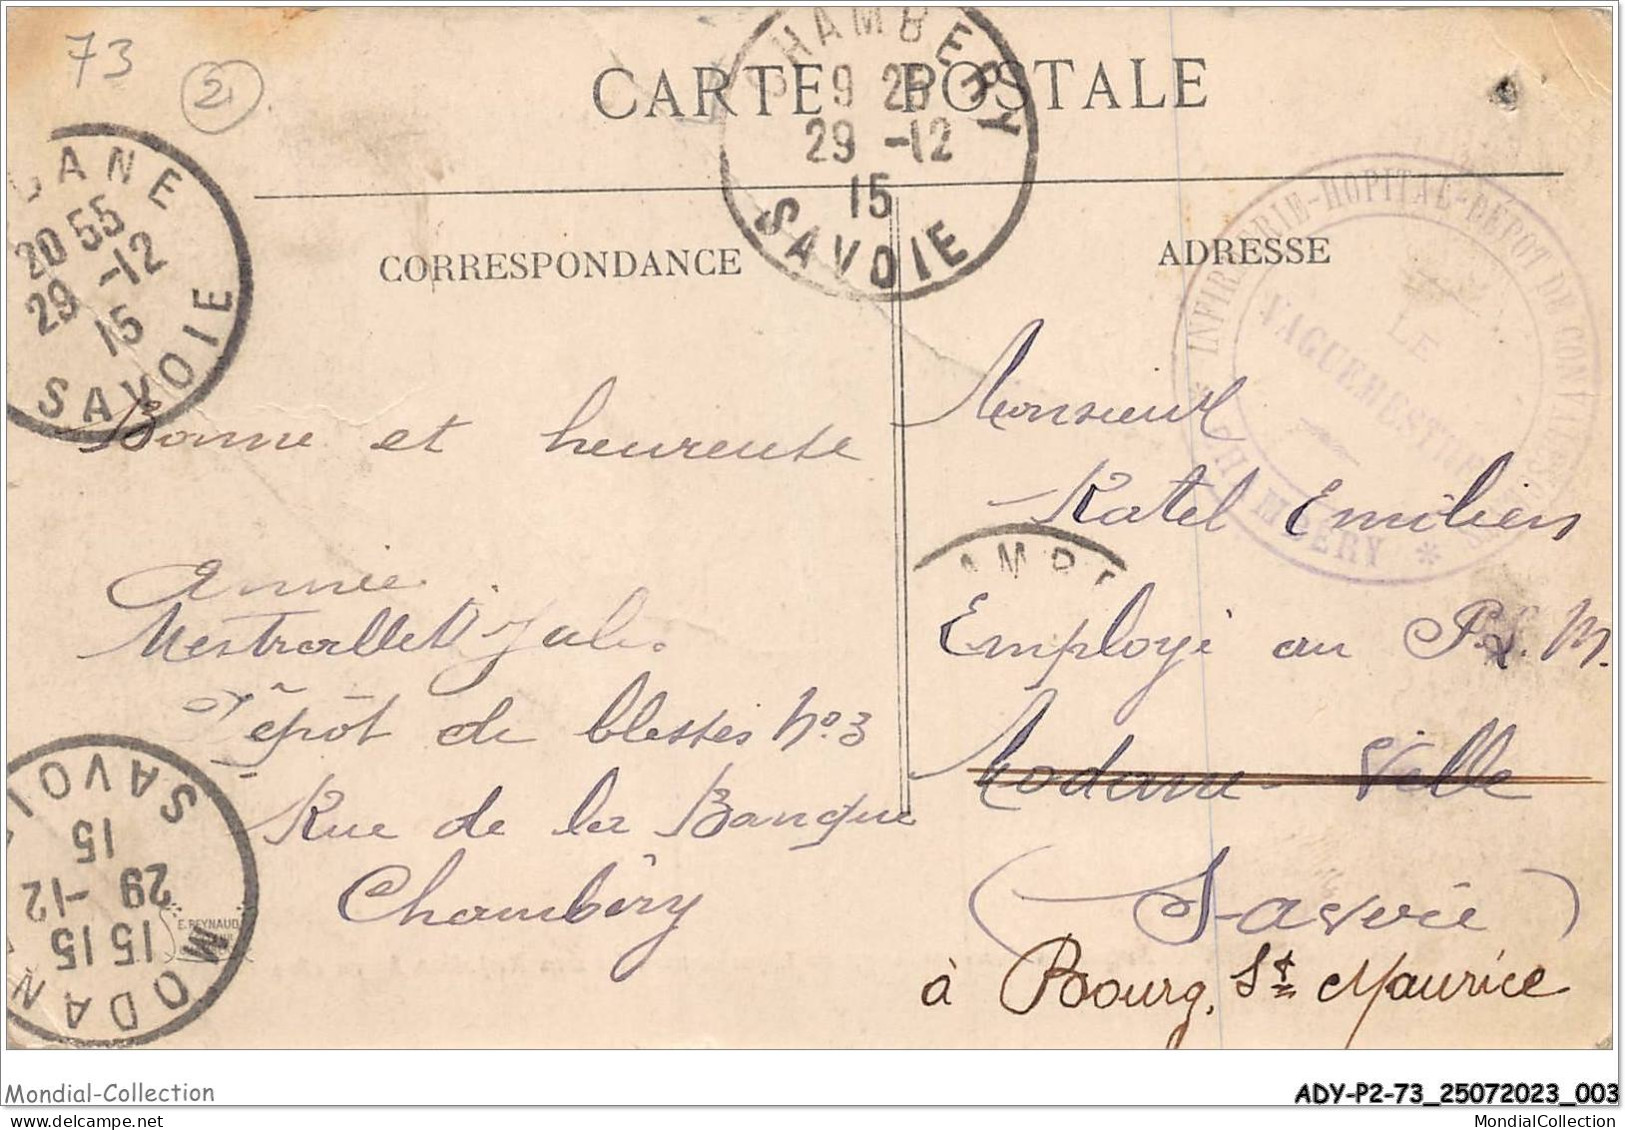 73
2
CARTE POSTALE
CHAMBERY
9 25
29 -12
15
SAVOIE
DANE
20 55
29 -12
15
SAVOIE
CORRESPONDANCE
ADRESSE
INFIRMERIE-HOPITAL-DÉPOT DE CONVALESCENTS
LE
VAGUEMESTRE
* CHAMBÉRY *
Bonne et heureuse
Année
Mestrallet Jules
Dépôt de blessés No 3
Rue de la Banque
Chambéry
Monsieur
Ratel Emilien
AMBE
Employé au P. L. M.
Modane Ville
(Savoie)
à Bourg, St Maurice
MODANE
15 15
29 -12
15
SAVOIE
E. REYNAUD
Mondial-Collection
ADY-P2-73_25072023_003
MondialCollection